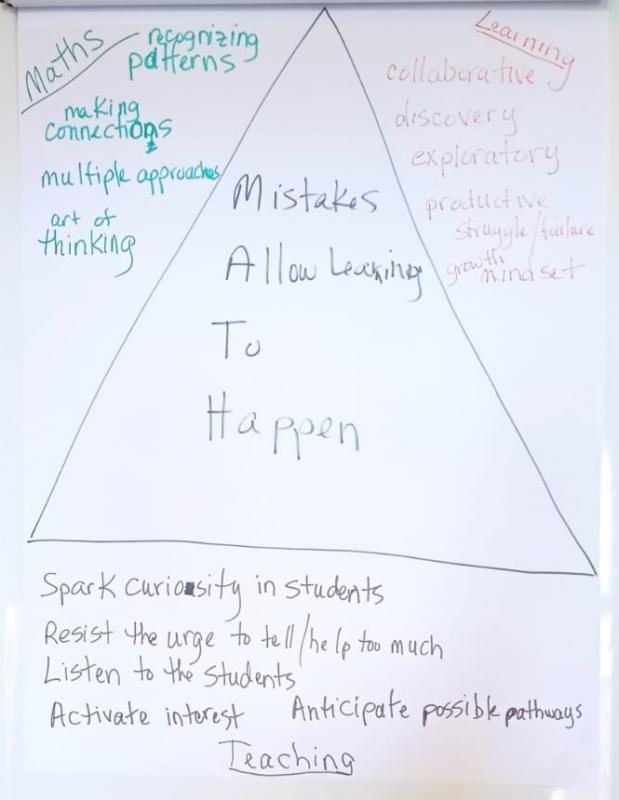 Maths
recognizing
patterns
making
connections
multiple approaches
art of
thinking
Learning
collaborative
discovery
exploratory
productive
struggle/failure
growth
mindset
Mistakes
Allow Learning
To
Happen
Spark curiosity in students
Resist the urge to tell/help too much
Listen to the students
Activate interest Anticipate possible pathways
Teaching